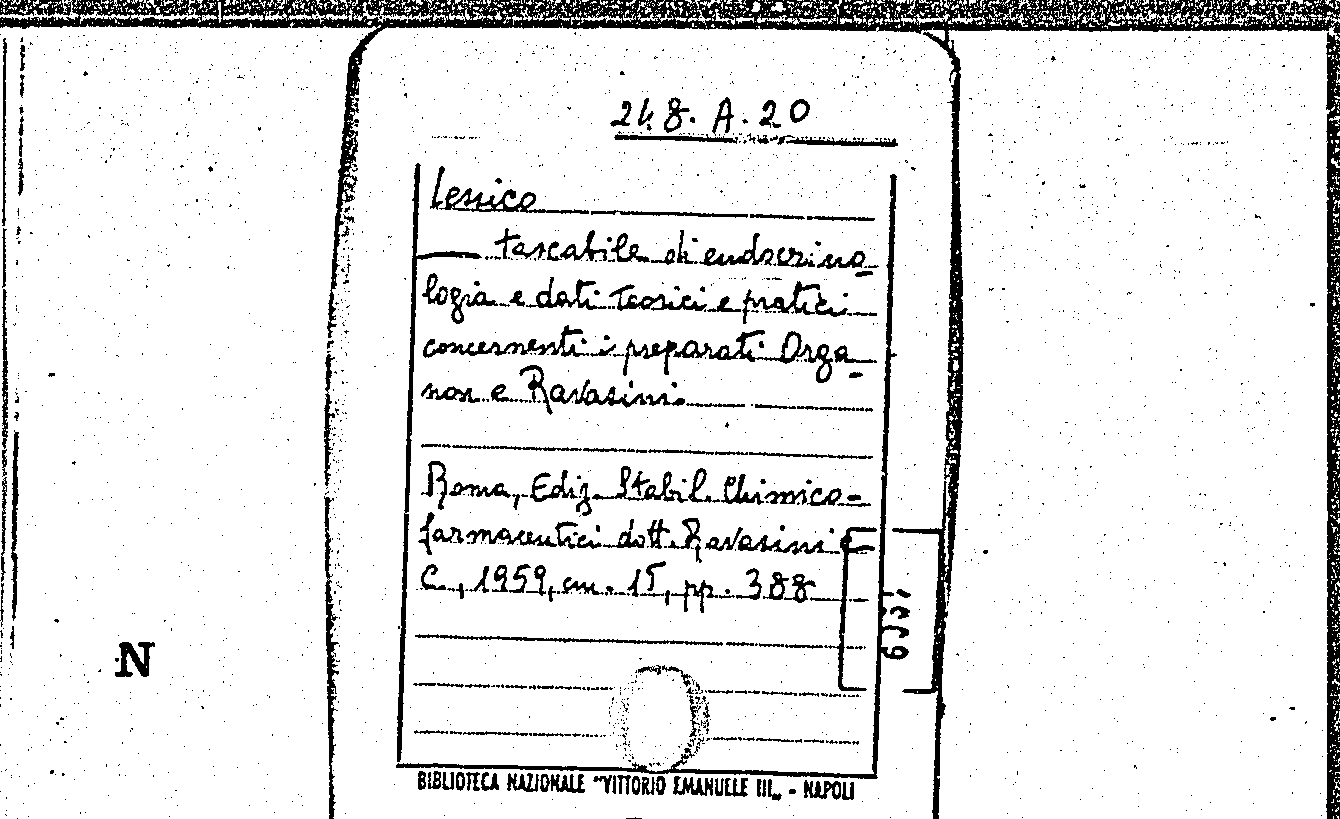 248. A. 20
Lessico
—— tascabile di endocrino-
logia e dati teorici e pratici
concernenti i preparati Orga-
non e Ravasini.
Roma, Ediz. Stabil. Chimico-
farmaceutici dott. Ravasini e
C., 1959, cm. 15, pp. 388
N
BIBLIOTECA NAZIONALE "VITTORIO EMANUELE III„ - NAPOLI